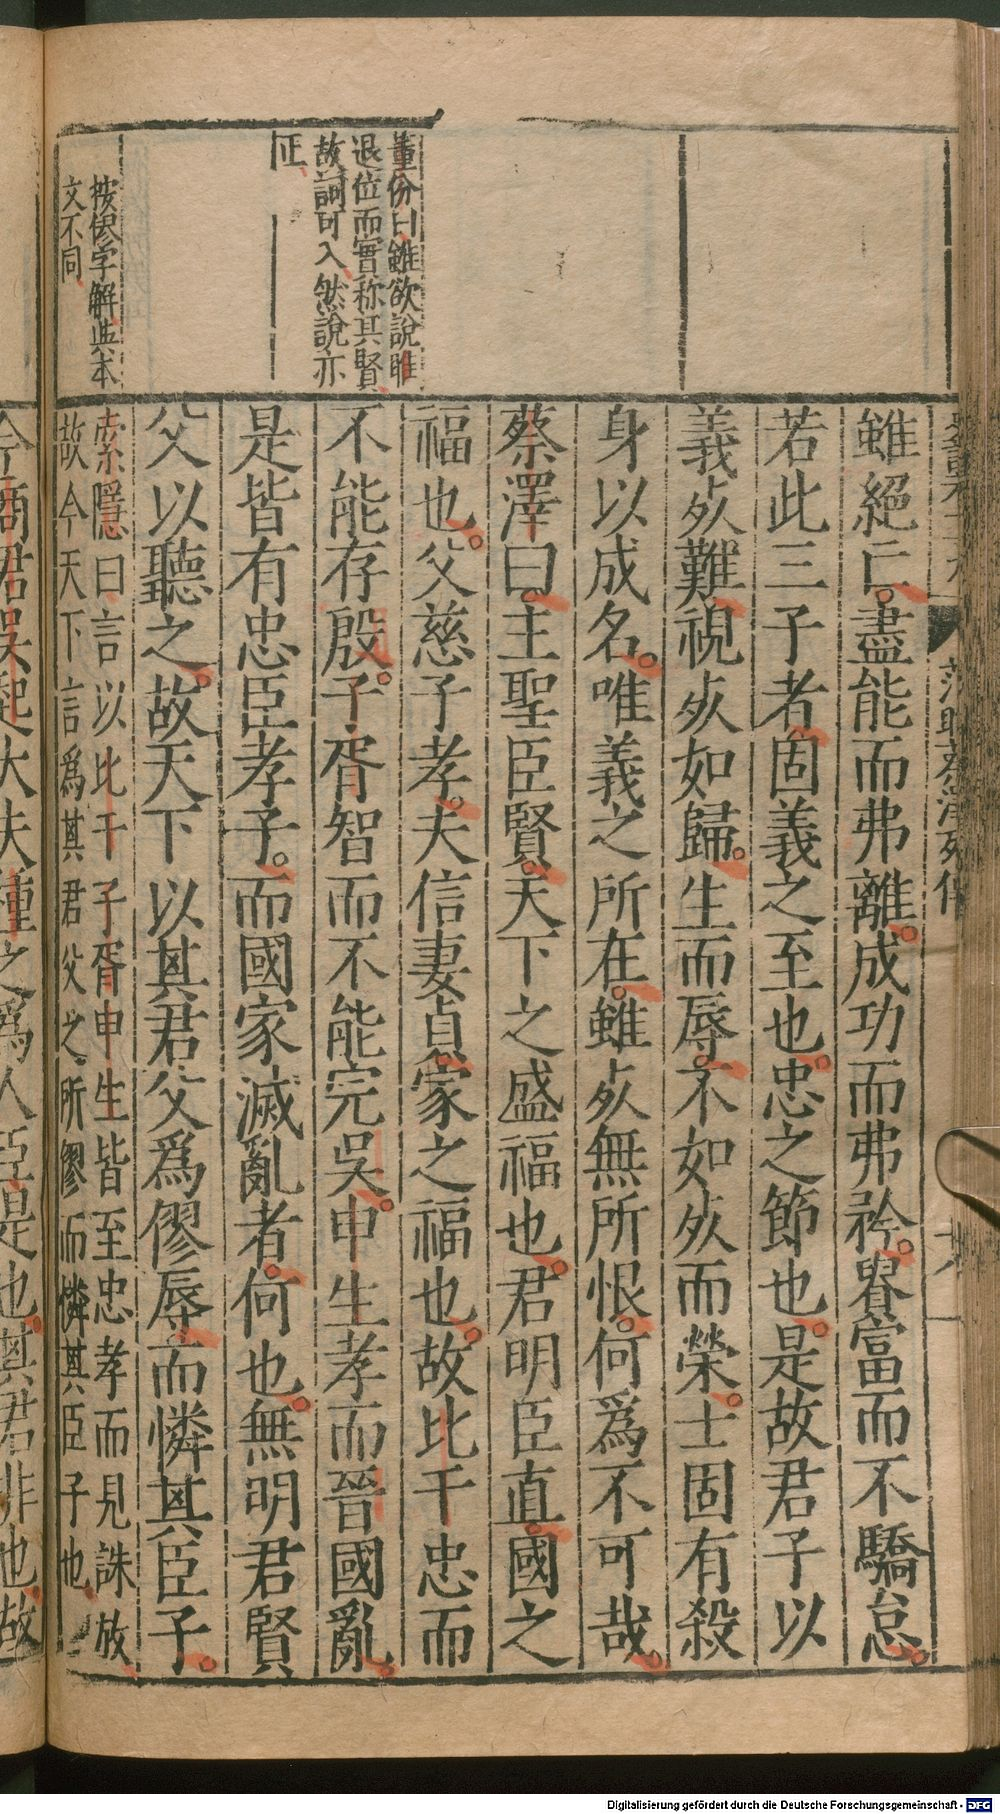 雖絕亡盡能而弗離成功而弗矜貴富而不驕怠
若此三子者固義之至也忠之節也是故君子以
義死難視死如歸生而辱不如死而榮士固有殺
身以成名唯義之所在雖死無所恨何爲不可哉
蔡澤曰主聖臣賢天下之盛福也君明臣直國之
福也父慈子孝夫信妻貞家之福也故比干忠而
不能存殷子胥智而不能完吳申生孝而晉國亂
是皆有忠臣孝子而國家滅亂者何也無明君賢
父以聽之故天下以其君父爲僇辱而憐其臣子
索隱曰言以比干子胥申生皆至忠孝而見誅放
故今天下言爲其君父之所僇而憐其臣子也
董份曰雖欲說睢
退位而實称其賢
故詞可入然說亦
正
按僇字解與本
文不同
范睢蔡澤列傳
今商君吳起大夫種之爲人臣是也其君非也故
Digitalisierung gefördert durch die Deutsche Forschungsgemeinschaft - DFG